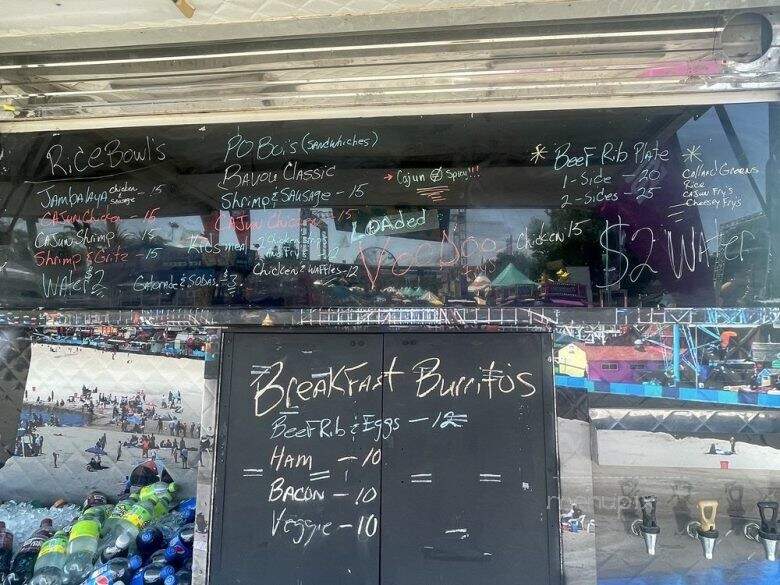 Rice Bowl's
Jambalaya chicken & sausage - 15
Cajun Chicken - 15
Cajun Shrimp - 15
Shrimp & Gritz - 15
Water 2
Gatorade & Sodas - $3
PO Boi's (Sandwhiches)
Bayou Classic
Shrimp & Sausage - 15
Cajun Chicken 15
Kids meal - 2 Chicken
Chicken & Waffles - 12
→ Cajun Ø Spicy!!!
Loaded
VooDoo
Fry's
Chicken 15
Beef Rib Plate
1 - Side - 20
2 - Sides - 25
Collard Greens
Rice
Cajun Fry's
Cheesy Fry's
$2 Water
Breakfast Burritos
Beef Rib & Eggs - 12
Ham - 10
Bacon - 10
Veggie - 10